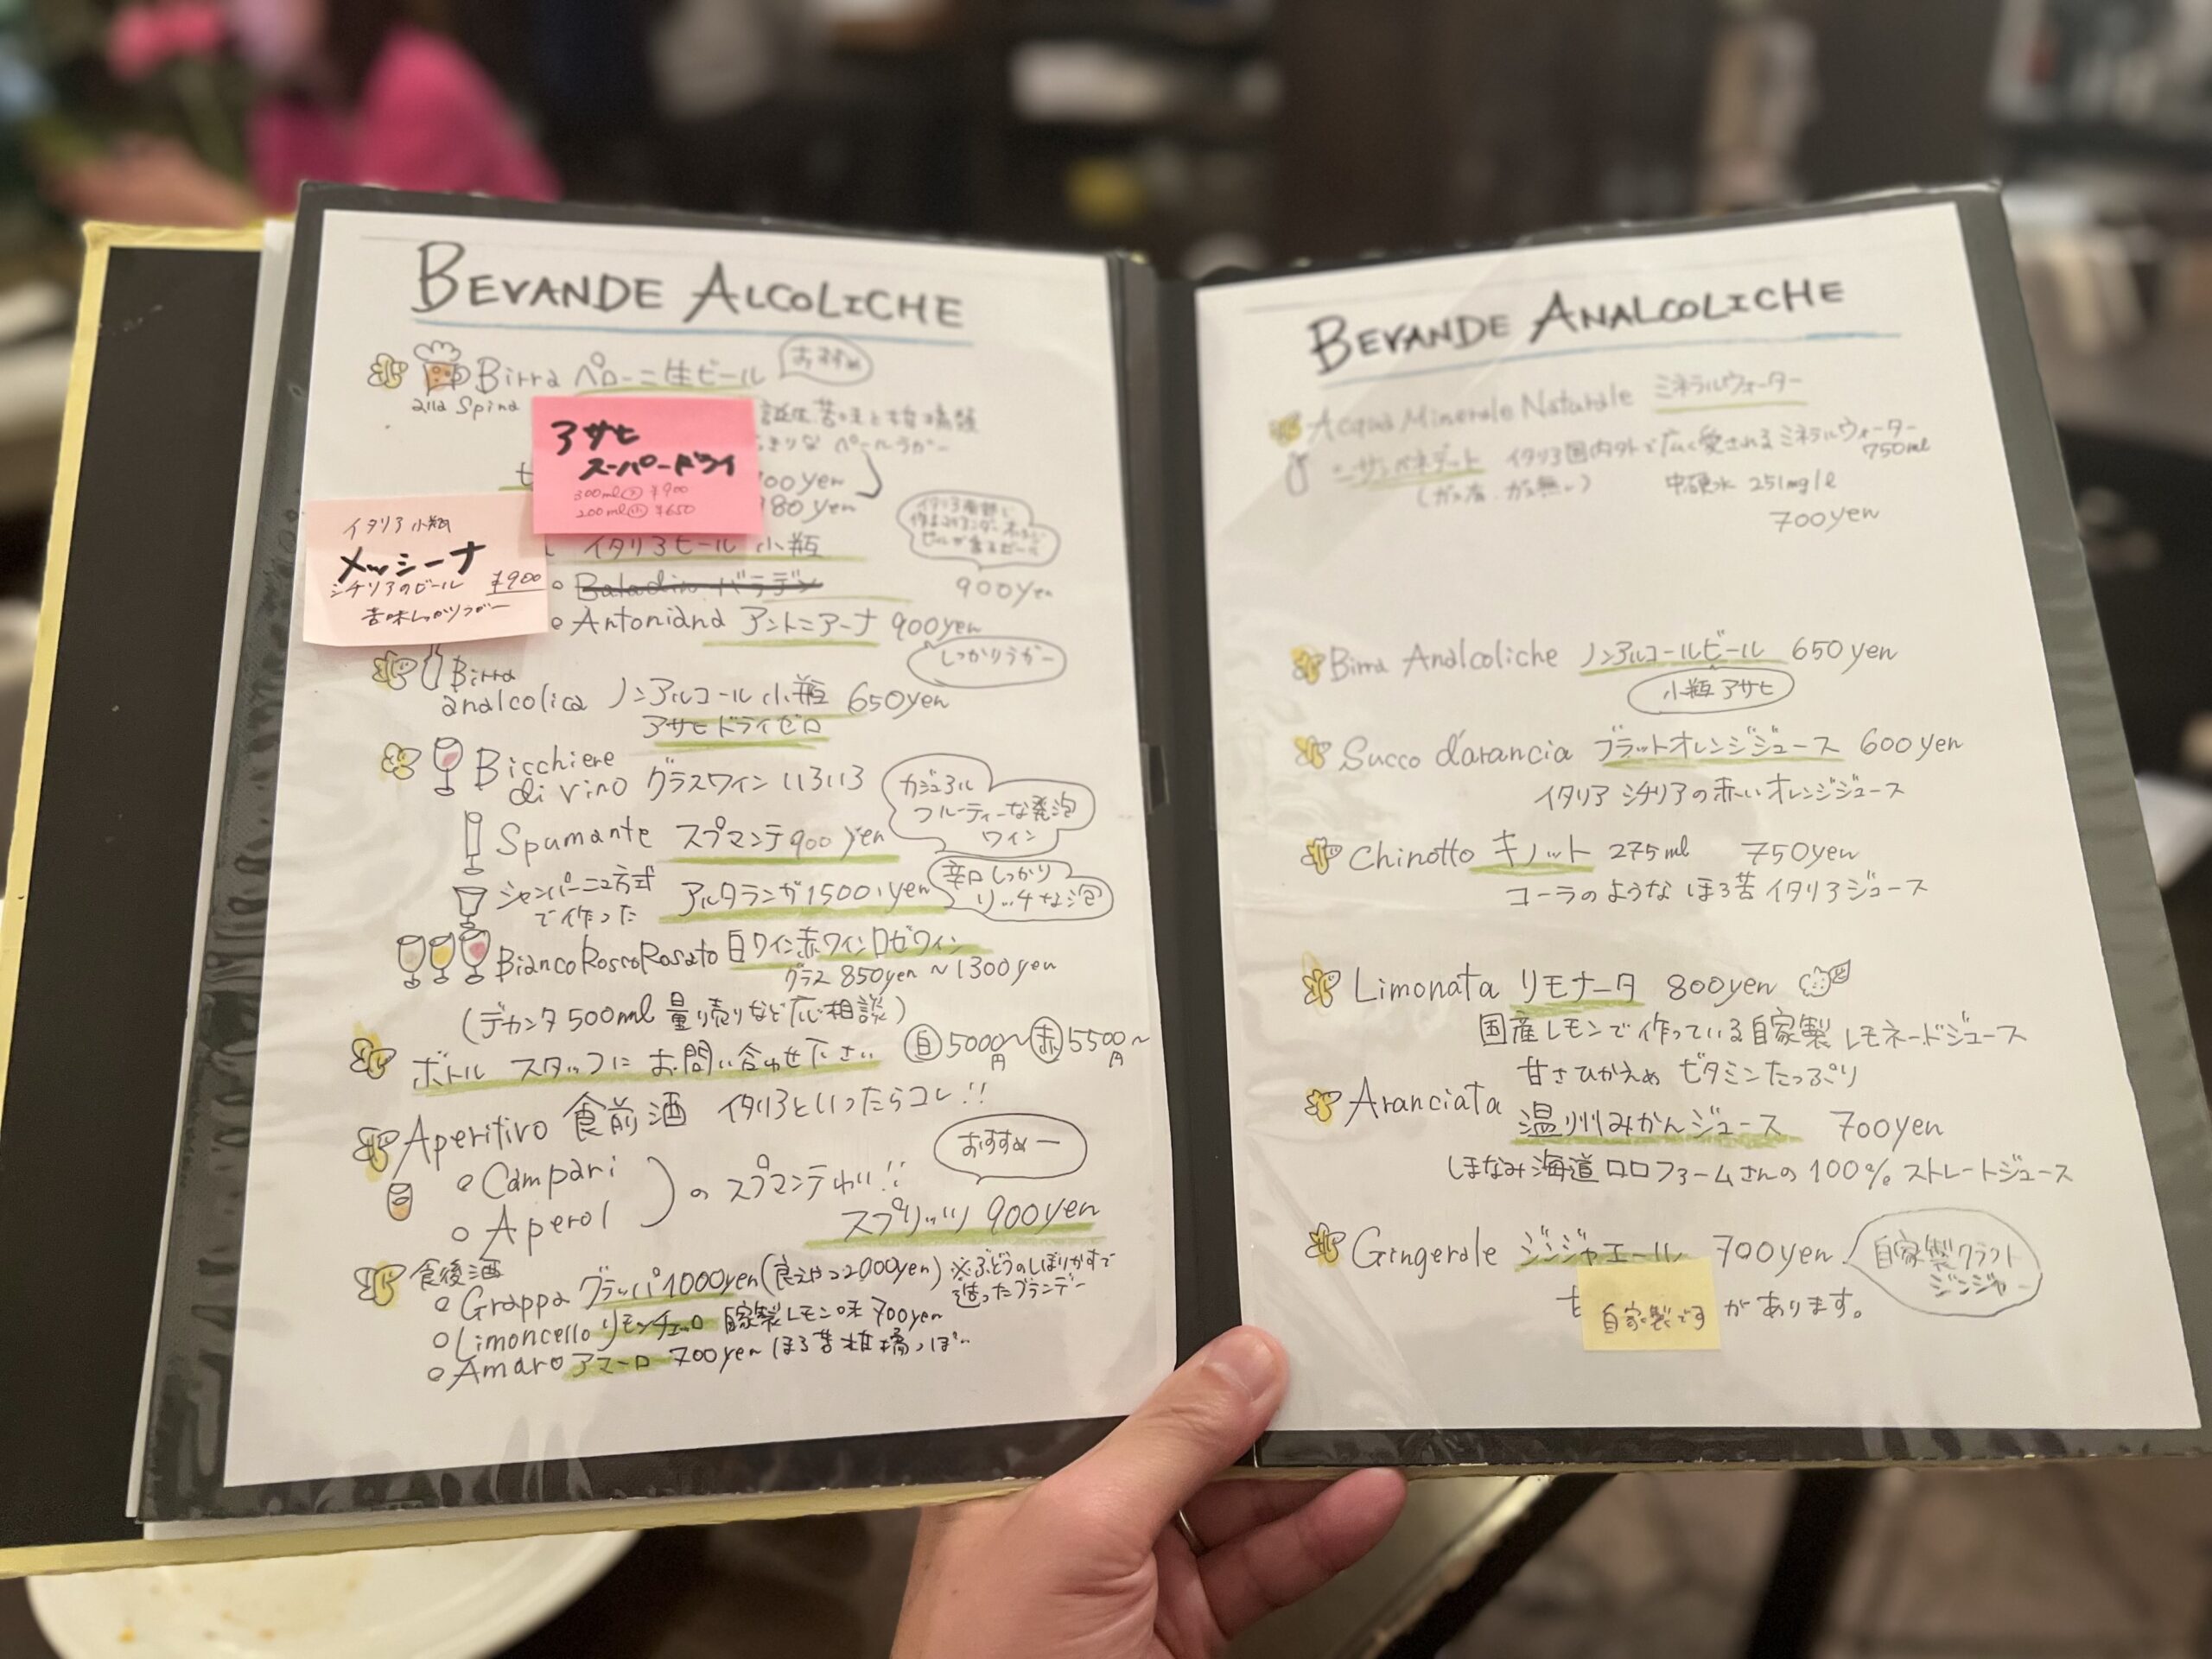 BEVANDE ALCOLICHE
Birra ペローニ生ビール おすすめ
alla Spina
誕生 苦味と柑橘類
ペールラガー
アサヒ
スーパードライ
300ml 大 ¥900
200ml 小 ¥650
00yen
80yen
イタリア小瓶
メッシーナ
シチリアのビール ¥900
苦味しっかりラガー
イタリアビール 小瓶
Baladin バラデン 900yen
Antoniana アントニアーナ 900yen
しっかりラガー
Birra
analcolica ノンアルコール 小瓶 650yen
アサヒドライゼロ
Bicchiere
di vino グラスワイン いろいろ
Spumante スプマンテ 900yen
カジュアル
フルーティーな発泡
ワイン
シャンパーニュ方式
で作った アルタランガ 1500yen
辛口しっかり
リッチな泡
BiancoRossoRosato 白ワイン赤ワインロゼワイン
グラス 850yen 〜 1300yen
(デカンタ 500ml 量り売りなど応相談)
ボトル スタッフに お問い合わせ下さい 白 5000円〜 赤 5500円〜
Aperitivo 食前酒 イタリアといったらコレ!!
Campari
Aperol
のスプマンテわり!!
おすすめー
スプリッツ 900yen
食後酒
Grappa グラッパ 1000yen (良えやつ2000yen) ※ぶどうのしぼりかすで
造ったブランデー
Limoncello リモンチェッロ 自家製レモン味 700yen
Amaro アマーロ 700yen ほろ苦柑橘っぽい
BEVANDE ANALCOLICHE
Acqua Minerale Naturale ミネラルウォーター
サンベネデット イタリア国内外で広く愛されるミネラルウォーター
750ml
(ガス有・ガス無し) 中硬水 251mg/l
700yen
Birra Analcoliche ノンアルコールビール 650yen
小瓶アサヒ
Succo d'arancia ブラットオレンジジュース 600yen
イタリア シチリアの赤いオレンジジュース
Chinotto キノット 275ml 750yen
コーラのような ほろ苦イタリアジュース
Limonata リモナータ 800yen
国産レモンで作っている自家製レモネードジュース
甘さひかえめ ビタミンたっぷり
Aranciata 温州みかんジュース 700yen
しまなみ海道ロロファームさんの100%ストレートジュース
Gingerale ジンジャエール 700yen
自家製クラフト
ジンジャー
自家製です
があります。